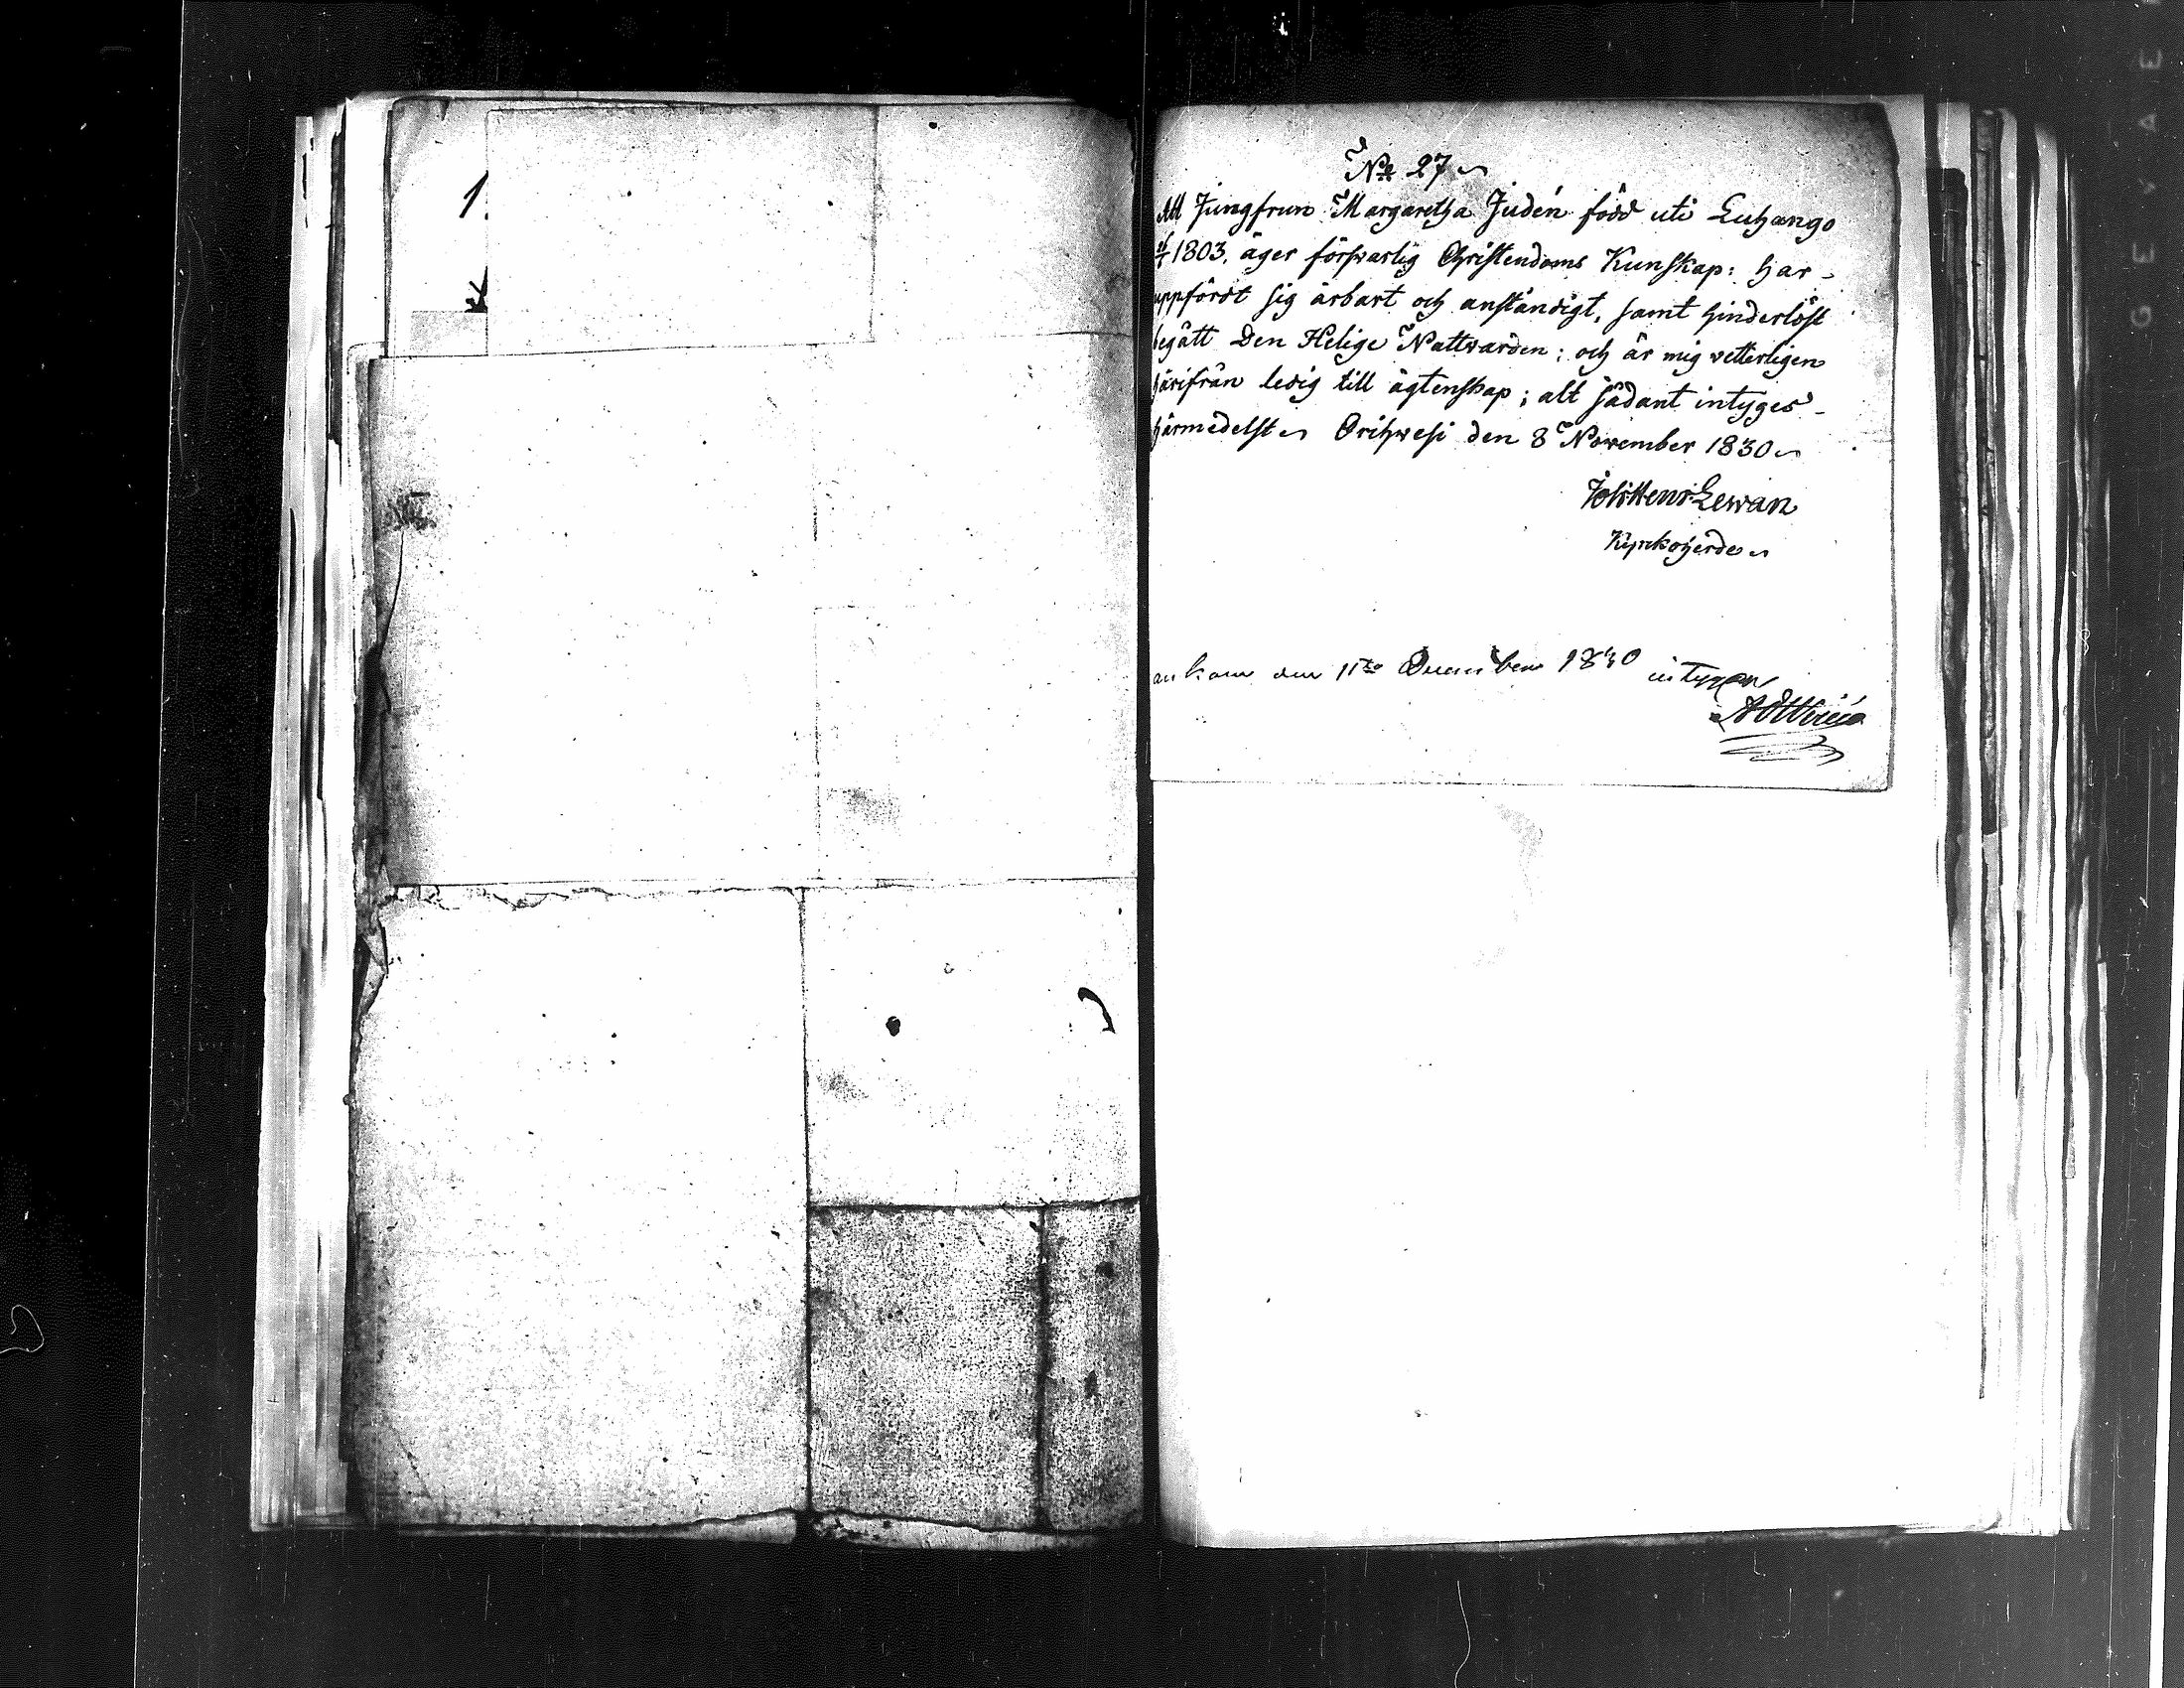 1.
No 27
Att Jungfrun Margaretha Judén född uti Luhango
1803, äger förswarlig Christendoms Kunskap: har
uppfördt sig ärbart och anständigt, samt hinderlöst
begått Den Helige Nattwarden; och är mig vetterligen
härifrån ledig till ägtenskap; alt sådant intyges
härmedelst Orihwesi den 8 November 1830
Lewan
Kyrkoherde
ankom den 11te December 1830 intygar
GEVAE